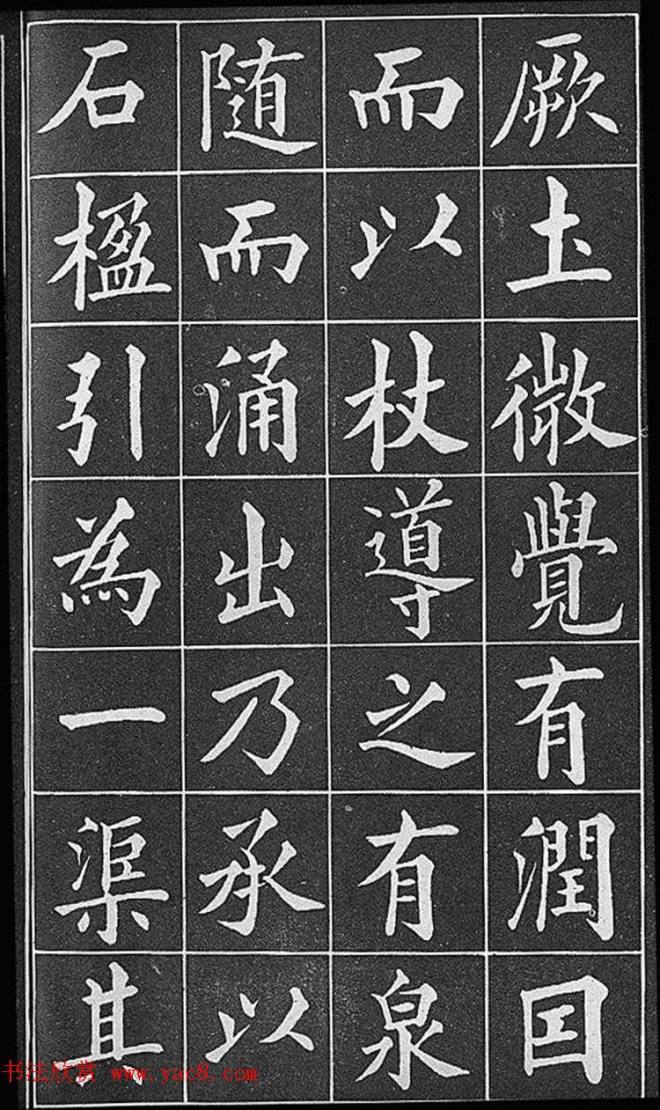 厥土微覺有潤囙
而以杖導之有泉
随而涌出乃承以
石楹引為一渠其
书法欣赏 www.yac8.com